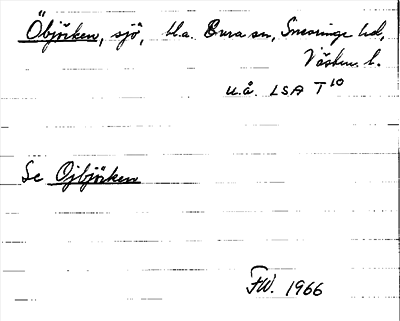 Öbjörken, sjö, bl.a. Bura sn, Snevringe hd,
Västm. l.
u.å. LSA T 10
Se Ojbjörken
FW. 1966